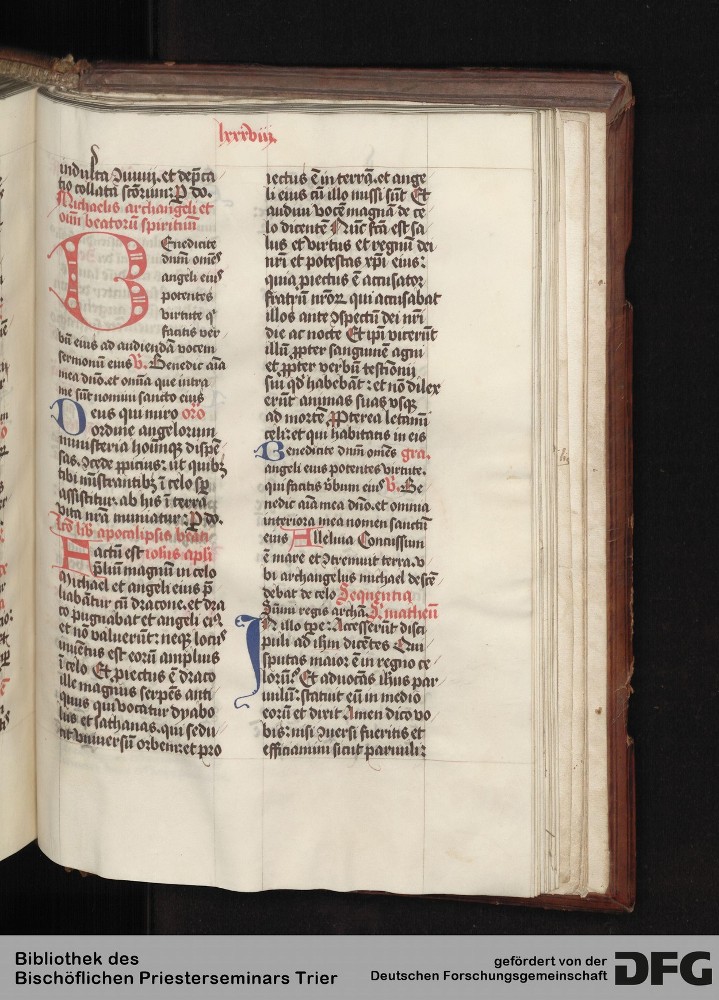 lxxxviij.
indulta ... et dep̄ca
tio collata sc̄orum: P do.
Michaelis archangeli et
oīm beatorū spirituū
Benedicite
dnm̄ omēs
angeli eiꝰ
potentes
virtute qͥ
facitis ver
bū eius ad audiendā vocem
sermonū eius V. Benedic aīa
mea dn̄o. et omīa que intra
me sūt nomini sancto eius
Deus qui miro oro̅
ordine angelorum
ministeria hoīmqꝫ dispē
sas. ꝯcede ꝓpicius: ut quibꝫ
tibi mīstrantibꝫ ī celo sꝑ
assistitur. ab his ī terra
vita nr̄a muniatur: P do.
Lc̄o lib̄ apocalipsis beati
Factū est iohīs apl̄i
p̄liū magnū in celo
Michael et angeli eius p̄
liabātur cū dracone. et dra
co pugnabat et angeli eiꝰ.
et nō valuerūt: neqꝫ locꝰ
inuētus est eorū amplius
ī celo Et ꝓiectus ē draco
ille magnus serpēs anti
quus qui vocatur dyabo
lus et sathanas. qui sedu
cit vniuersū orbem: et pro
iectus ē in terrā. et ange
li eius cū illo missi sūt Et
audiui vocē magnā de ce
lo dicentē Nūc fc̄a est sa
lus et virtus et regnū dei
nr̄i et potestas xp̄i eius:
quia ꝓiectus ē accusator
fratrū nr̄oꝝ qui accusabat
illos ante ꝯspectū dei nr̄i
die ac nocte Et ip̄i vicerūt
illū ꝓpter sanguinē agni
et ꝓpter verbū testīonij
sui qd̄ habebāt: et nō dilex
erūt animas suas vsqꝫ
ad mortē Propterea letamī
celi: et qui habitatis in eis
Benedicite dnm̄ omēs gra.
angeli eius potentes virtute.
qui facitis v̄bum eiꝰ V. Be
nedic aīa mea dn̄o. et omnia
interiora mea nomen sanctū
eius Alleluia Concussum
ē mare et ꝯtremuit terra. v
bi archangelus michael descē
debat de celo Sequentia
Sūmi regis archā. S. matheū
In illo tp̄e: Accesserūt disci
puli ad ihm̄ dicētes Quis
putas maior ē in regno ce
lorū? Et aduocās ihūs par
uulū: statuit eū in medio
eorū et dixit Amen dico vo
bis: nisi ꝯuersi fueritis et
efficiamini sicut paruuli:
Bibliothek des
Bischöflichen Priesterseminars Trier
gefördert von der
Deutschen Forschungsgemeinschaft
DFG